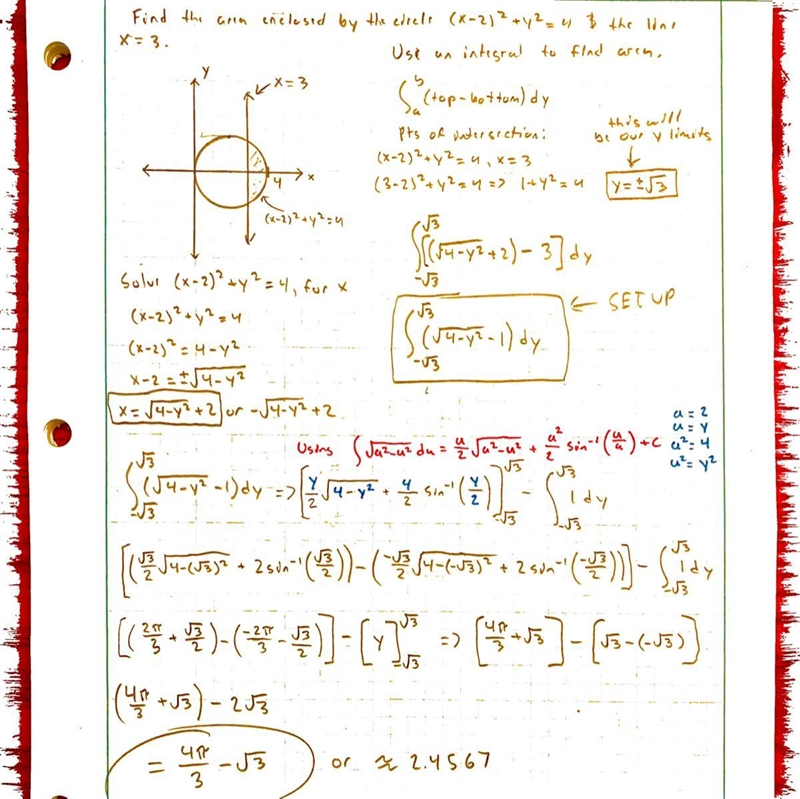 Find the area enclosed by the circle (x-2)² + y² = 4 & the line
x = 3.
y
x = 3
4
x
(x-2)² + y² = 4
Use an integral to find area.
∫_a^b (top - bottom) dy
Pts of intersection:
(x-2)² + y² = 4, x = 3
(3-2)² + y² = 4 => 1 + y² = 4
this will
be our y limits
y = ±√3
∫_{-√3}^{√3} [(√(4-y²) + 2) - 3] dy
∫_{-√3}^{√3} (√(4-y²) - 1) dy
← SET UP
Solve (x-2)² + y² = 4, for x
(x-2)² + y² = 4
(x-2)² = 4 - y²
x - 2 = ±√(4-y²)
x = √(4-y²) + 2 or -√(4-y²) + 2
Using ∫ √(a²-u²) du = u/2 √(a²-u²) + a²/2 sin⁻¹(u/a) + C
a = 2
u = y
a² = 4
u² = y²
∫_{-√3}^{√3} (√(4-y²) - 1) dy => [y/2 √(4-y²) + 4/2 sin⁻¹(y/2)]_{-√3}^{√3} - ∫_{-√3}^{√3} 1 dy
[(√3/2 √(4-(√3)²) + 2 sin⁻¹(√3/2)) - (-√3/2 √(4-(-√3)²) + 2 sin⁻¹(-√3/2))] - ∫_{-√3}^{√3} 1 dy
[(2π/3 + √3/2) - (-2π/3 - √3/2)] - [y]_{-√3}^{√3} => [4π/3 + √3] - [√3 - (-√3)]
(4π/3 + √3) - 2√3
= 4π/3 - √3 or ≈ 2.4567